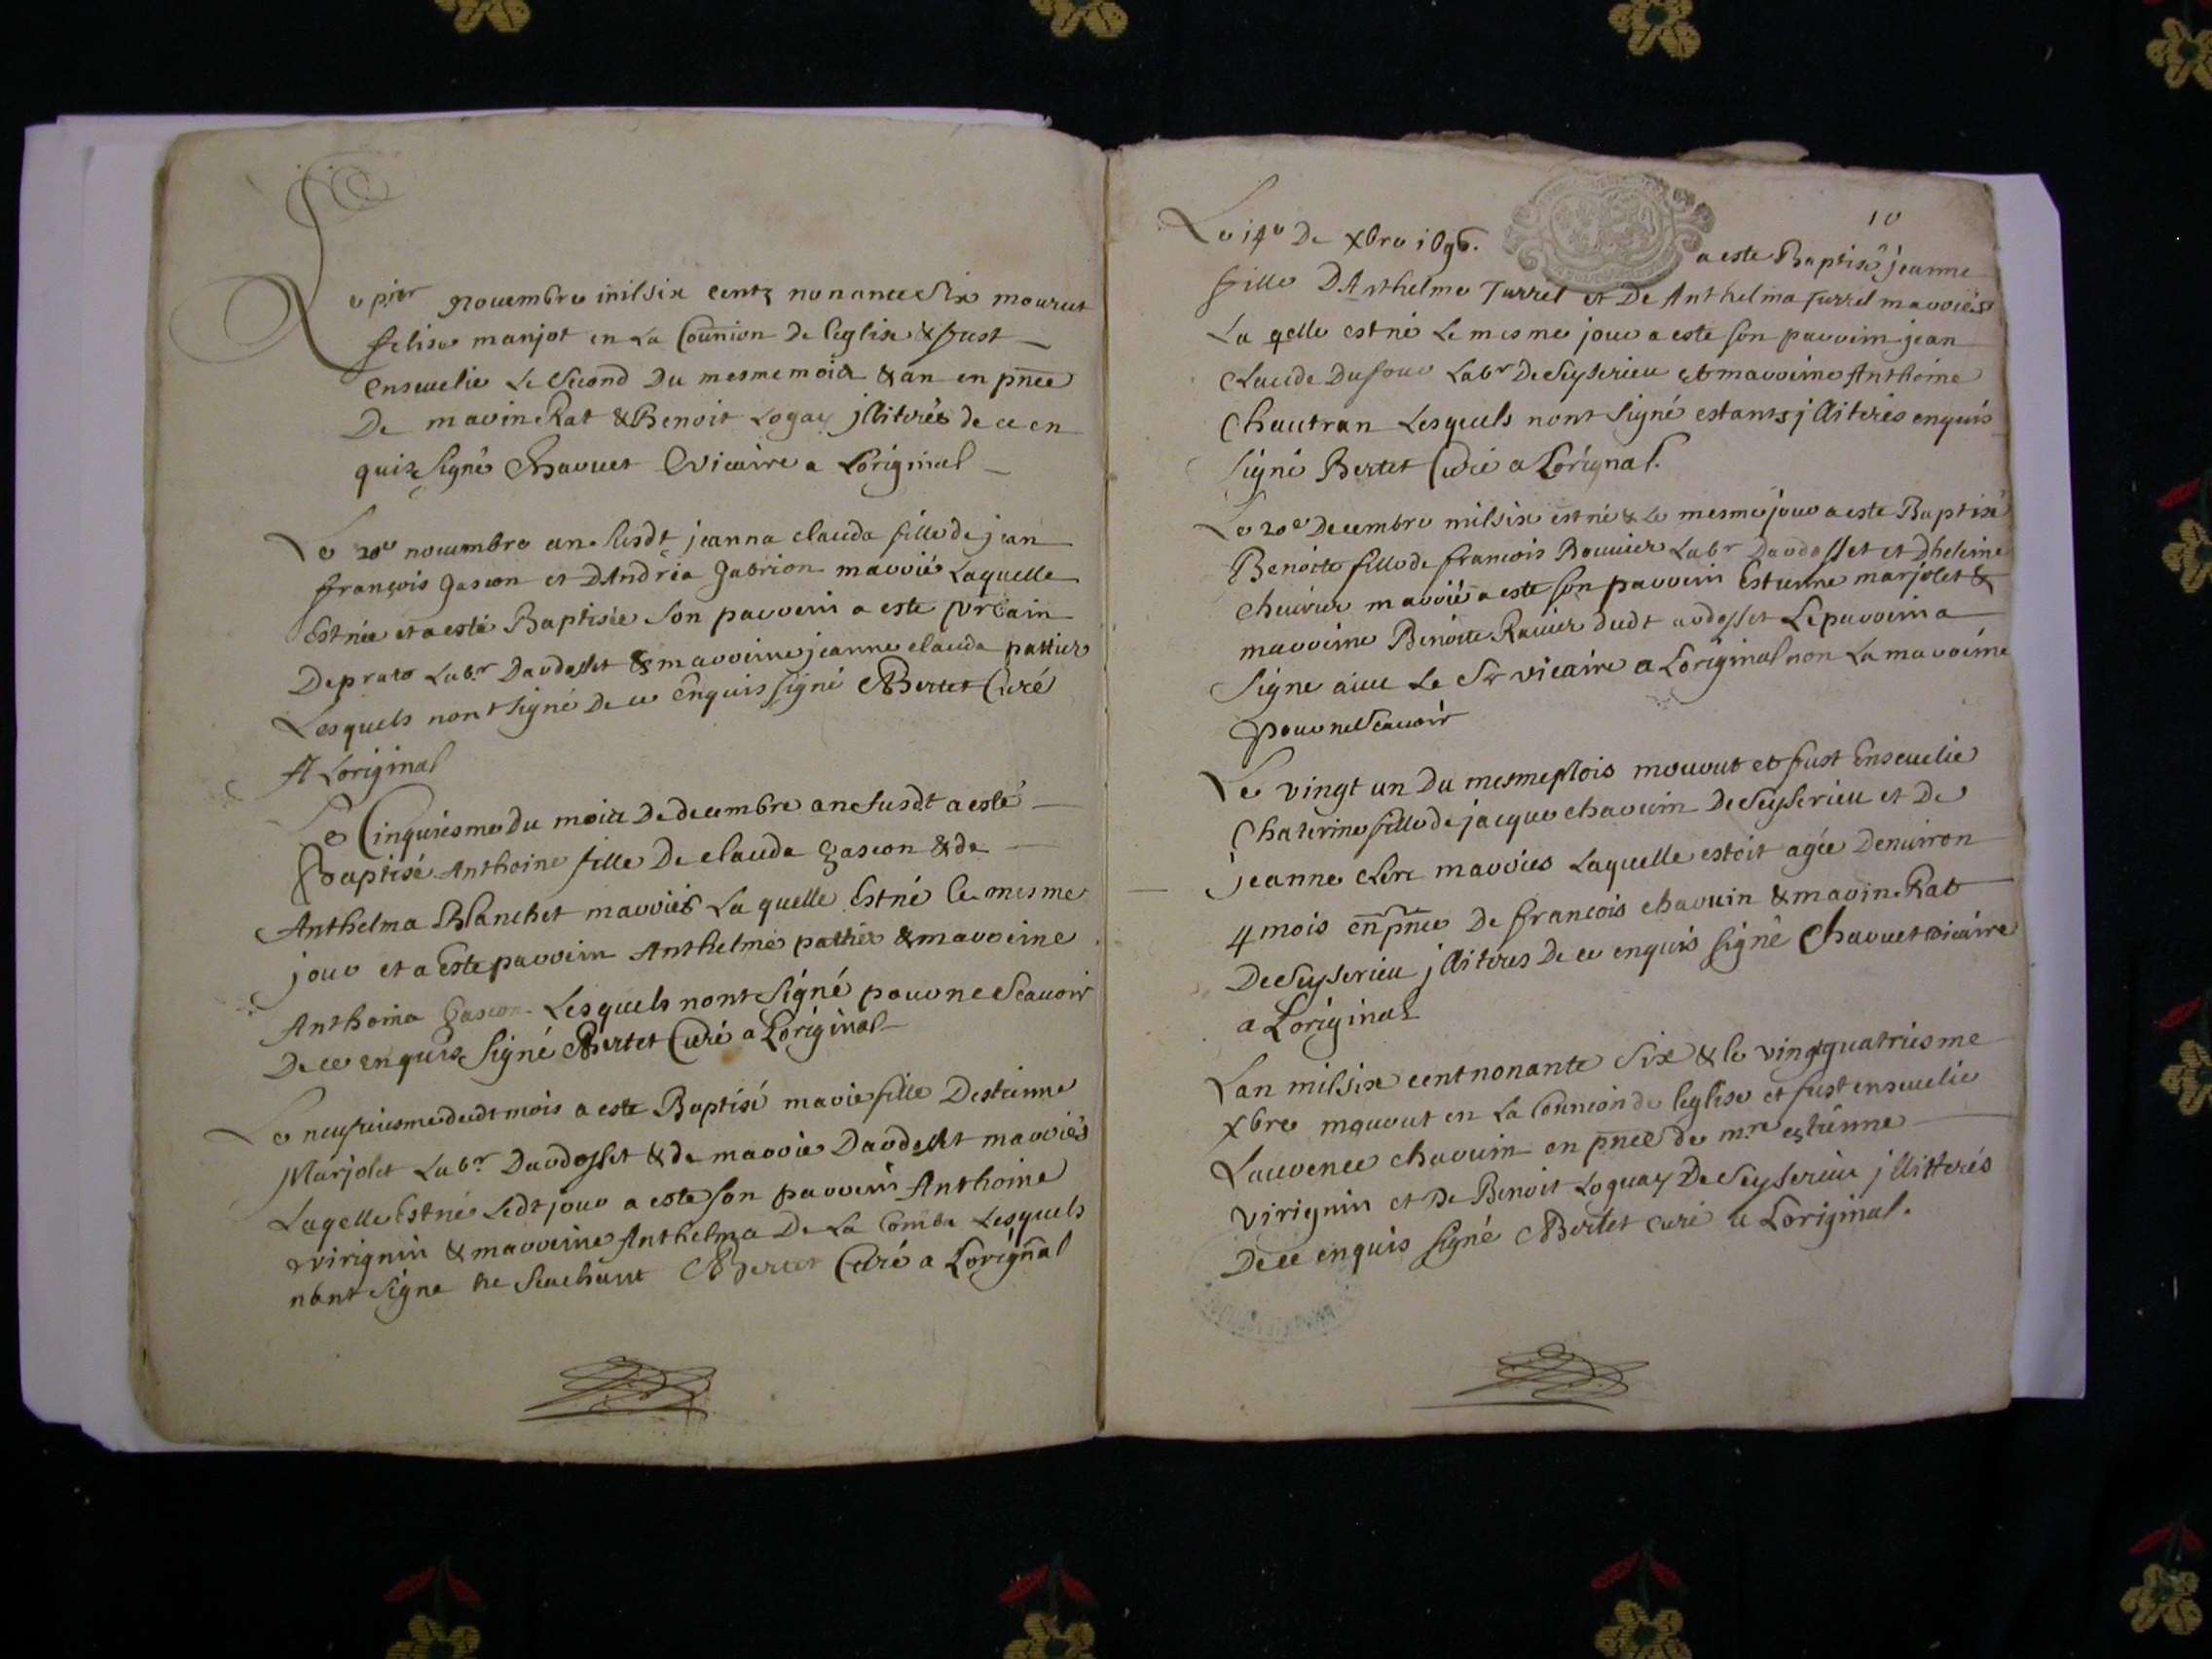 Le pier novembre mil six centz nonante six mourut
felise manjot en La Coūnion de leglise & fust
Enseuelie Le Second Du mesme mois & an en pn̄ce
De marin Rat & Benoit Logay jllitérés de ce en
quis Signé Chavuet Vicaire a Loriginal
Le 20e nouembre an susdt jeanna clauda fille de jean
françois gascon et DAndréa gabrion mariés Laquelle
Est née et a esté Baptisée Son parrein a este
Deprato Labr Dardosset & marreine jeanne clauda pattier
Lesquels nont signé De ce Enquis signé Bertet Curé
A Loriginal
Le Cinquiesme Du mois De decembre an susdt a esté
Baptisé Anthoine fille De clauda gascon & de
Anthelma Blanchet mariés La quelle Est né le mesme
jour et a Este parrein Anthelme pattier & marreine
Anthoina Gascon Lesquels nont Signé pour ne Scauoir
De ce enquis Signé Bertet Curé a Loriginal
Le neufuiesme dudt mois a este Baptisé marie fille Destienne
Marjolet Labr Dardosset & de marie Dardosset mariés
Laqelle Est né Ledt jour a este son parrein Anthoine
virignin & marreine Anthelma De La Combe Lesquels
nont signe ne Scachant Bertet Curé a Lorign̄al
10
Le 14e De xbre 1696. a este Baptisé jeanne
fille DAnthelme Turrel et De Anthelma Turrel mariés
La qelle est né Le mesme jour a este son parrein jean
Claude Dufour Labr De Seyserieu et marreine Anthoine
Chautran Lesquels nont Signé estants jlliterés enquis
Signé Bertet Curé a Lorignal.
Le 20e Decembre mil six est né & Le mesme jour a este Baptisé
Benoite fille de francois Bouuier Labr Dardosset et Dheleine
cheurier mariés a este son parrein Estienne marjolet &
marreine Benoite Rauier dudt ardosset Le parrein a
Signe auec Le Sr vicaire a Loriginal non La marreine
pour ne Scauoir
Le vingt un Du mesme Mois mourut et fust Enseuelie
Chaterine fille de jacque chavuin De Seyserieu et De
jeanne clerc mariés Laquelle estoit agée Denuiron
4 mois en pn̄ce De francois chavuin & marin Rat
De Seyserieu jlliteres De ce enquis Signé Chavuet vicaire
a Loriginal
Lan mil six cent nonante Six & le vingt quatriesme
xbre mourut en La Coūnion de leglise et fust enseuelie
Laurence chavuin en pn̄ce de mre estienne
Virignin et De Benoit Loguay De Seyserieu jllitterés
De ce enquis Signé Bertet curé a Loriginal.